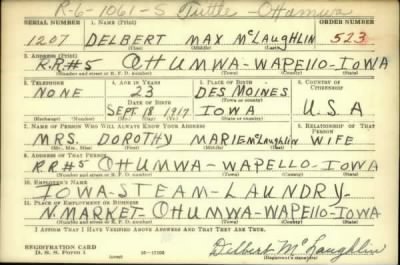 R-6-1061-S Tuttle-Ottumwa
SERIAL NUMBER 1. NAME (Print) ORDER NUMBER
1207 DELBERT MAX McLAUGHLIN 523
(First) (Middle) (Last)
2. ADDRESS (Print)
R.R#5 OTTUMWA-WAPELLO-IOWA
(Number and street or R. F. D. number) (Town) (County) (State)
3. TELEPHONE 4. AGE IN YEARS 5. PLACE OF BIRTH 6. COUNTRY OF CITIZENSHIP
NONE 23 DES MOINES
DATE OF BIRTH (Town or county) U.S.A
SEPT. 18, 1917 IOWA
(Exchange) (Number) (Mo.) (Day) (Yr.) (State or country)
7. NAME OF PERSON WHO WILL ALWAYS KNOW YOUR ADDRESS 8. RELATIONSHIP OF THAT PERSON
MRS. DOROTHY MARIE McLaughlin WIFE
(Mr., Mrs., Miss) (First) (Middle) (Last)
9. ADDRESS OF THAT PERSON
RR#5 OTTUMWA-WAPELLO-IOWA
(Number and street or R. F. D. number) (Town) (County) (State)
10. EMPLOYER'S NAME
IOWA-STEAM-LAUNDRY-
11. PLACE OF EMPLOYMENT OR BUSINESS
N-MARKET-OTTUMWA-WAPELLO-IOWA
(Number and street or R. F. D. number) (Town) (County) (State)
I AFFIRM THAT I HAVE VERIFIED ABOVE ANSWERS AND THAT THEY ARE TRUE.
REGISTRATION CARD
D. S. S. FORM 1 16-17105
Delbert McLaughlin
(Registrant's signature)